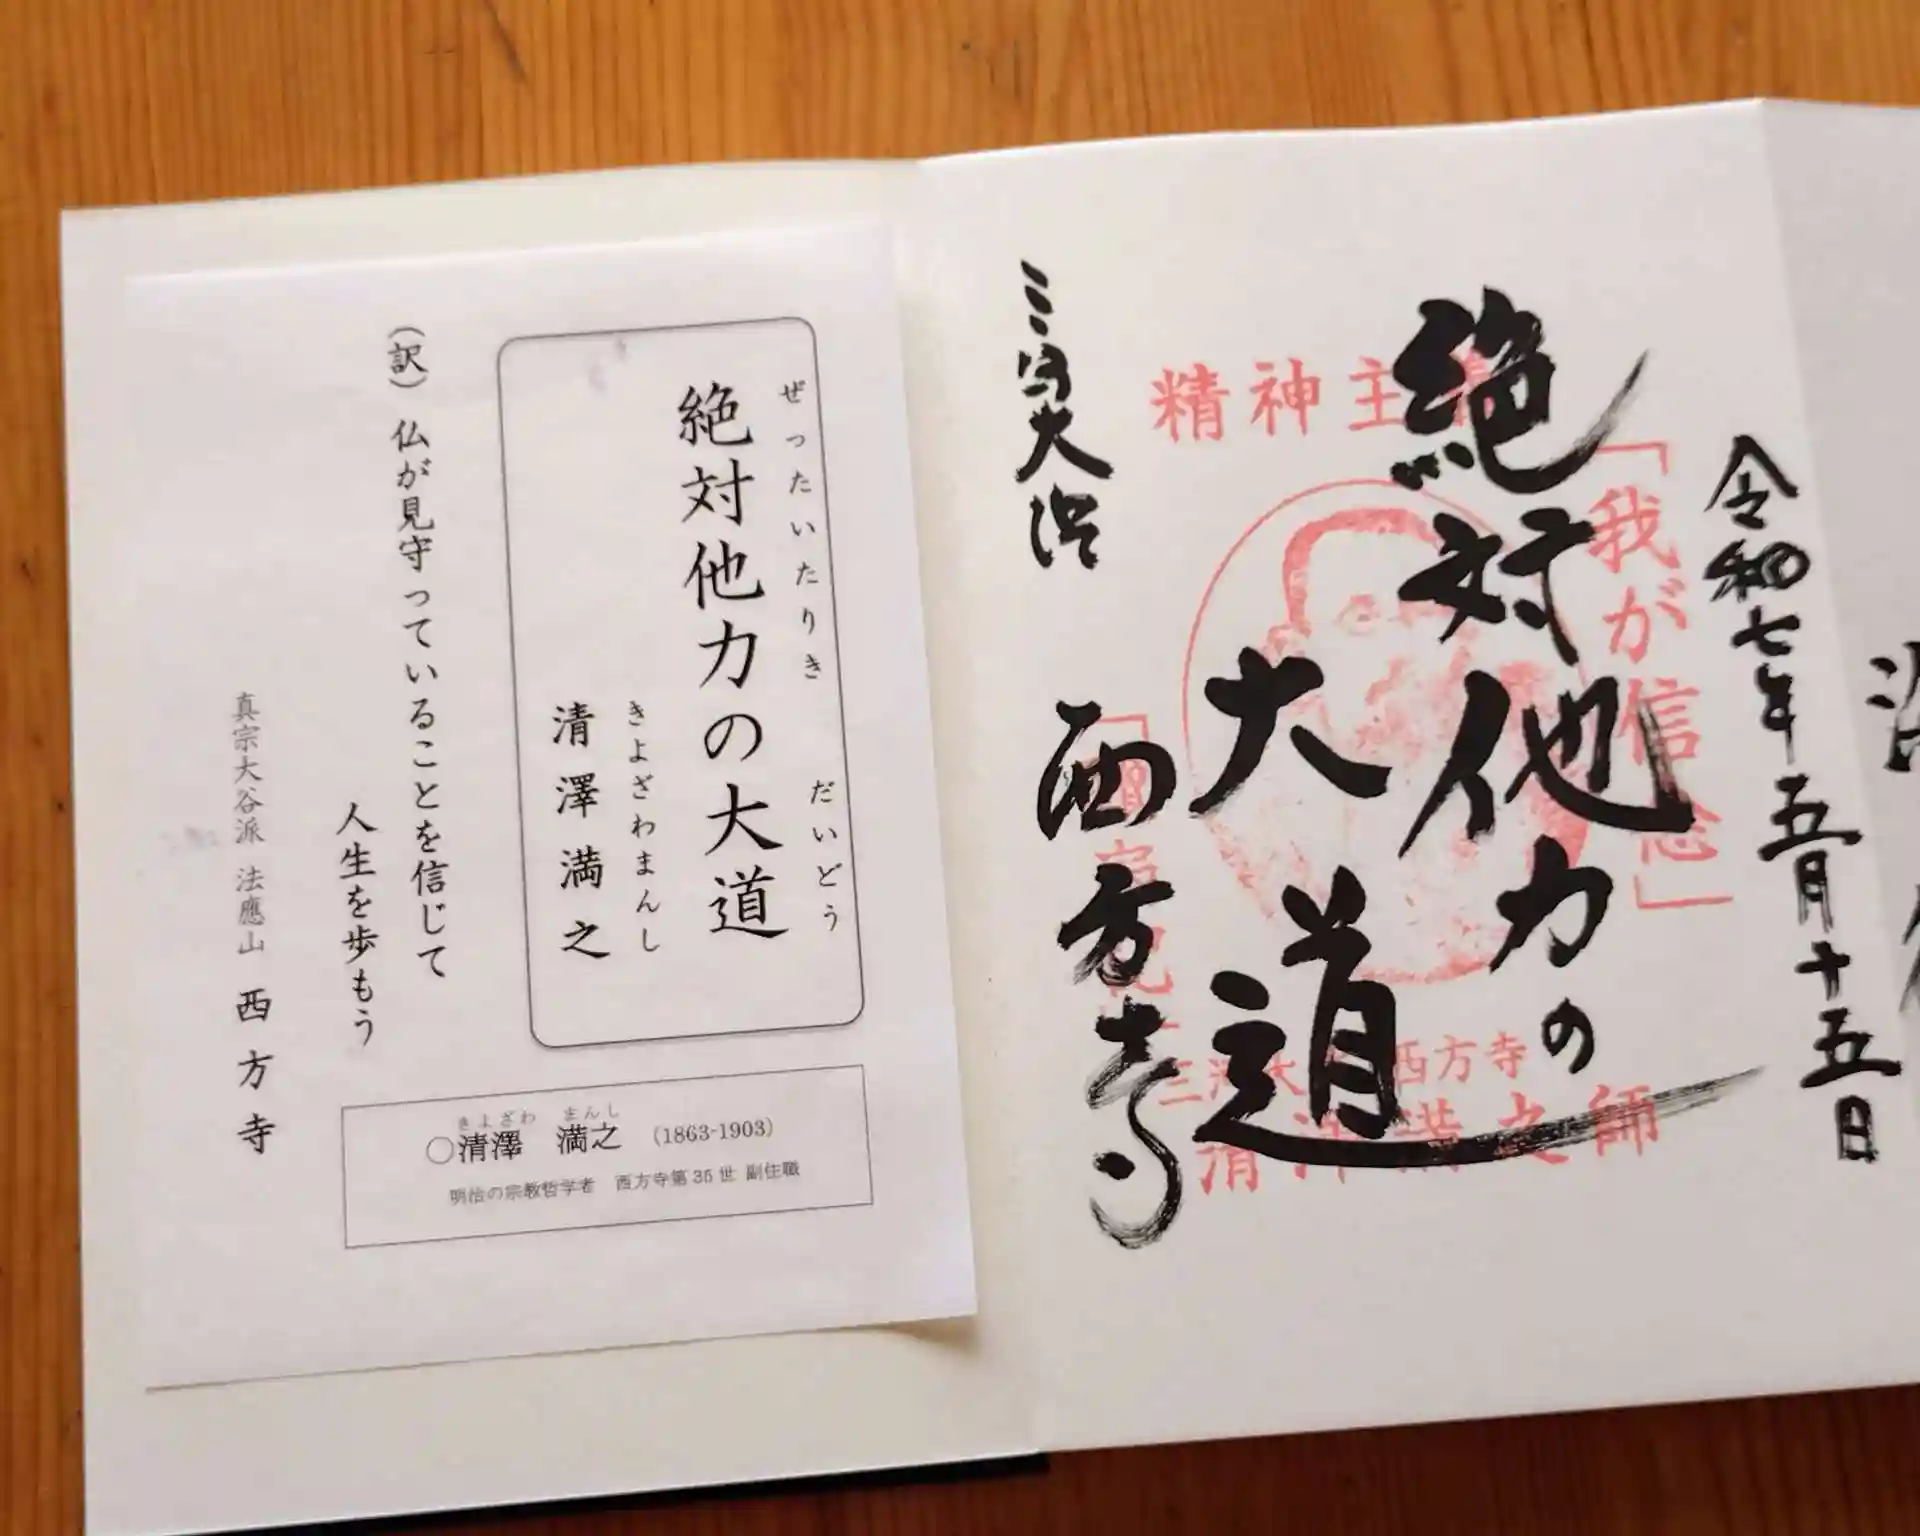 令和七年五月十五日
絶対他力の
大道
三河大浜
西方寺
精神主義
「我が信念」
三河大浜西方寺
清沢満之師
ぜったいたりき だいどう
絶対他力の大道
きよざわまんし
清澤満之
(訳) 仏が見守っていることを信じて
人生を歩もう
真宗大谷派 法應山 西方寺
きよざわ まんし
○清澤 満之 (1863-1903)
明治の宗教哲学者 西方寺第35世 副住職